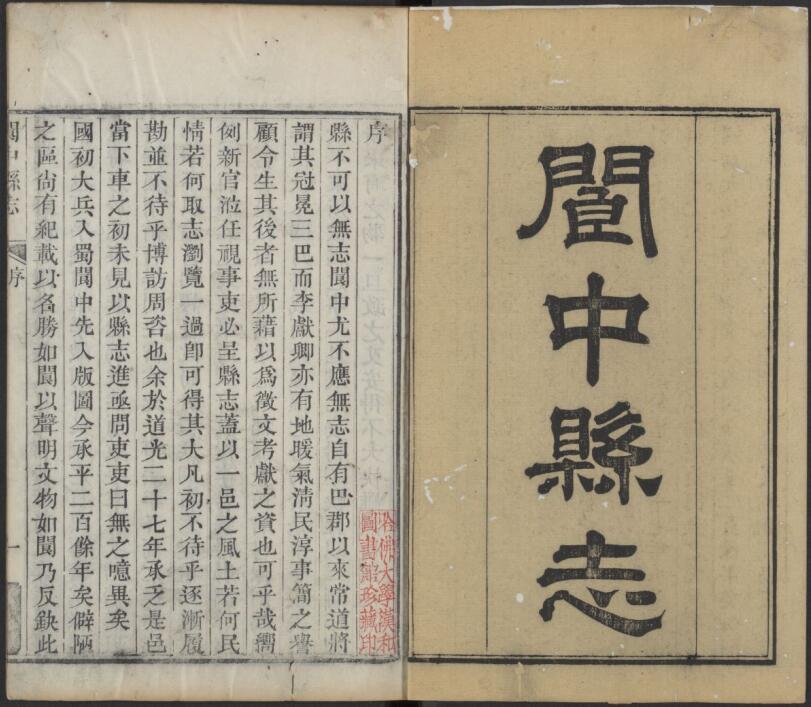 閬中縣志
序
縣不可以無志閬中尤不應無志自有巴郡以來常道將
謂其冠冕三巴而李獻卿亦有地暖氣淸民淳事簡之譽
顧令生其後者無所藉以爲徵文考獻之資也可乎哉嚮
例新官涖任視事吏必呈縣志蓋以一邑之風土若何民
情若何取志瀏覽一過卽可得其大凡初不待乎逐漸履
勘並不待乎博訪周咨也余於道光二十七年承乏是邑
當下車之初未見以縣志進亟問吏吏曰無之噫異矣
國初大兵入蜀閬中先入版圖今承平二百餘年矣僻陋
之區尙有紀載以名勝如閬以聲明文物如閬乃反缺此
閬中縣志
序
一
哈佛大學漢和
圖書館珍藏印